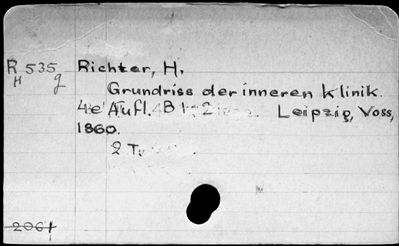 R 535 Richter, H.
H g
Grundriss der inneren Klinik.
4e Aufl. B 1-2 Leipzig, Voss,
1860.
2 T.
2061